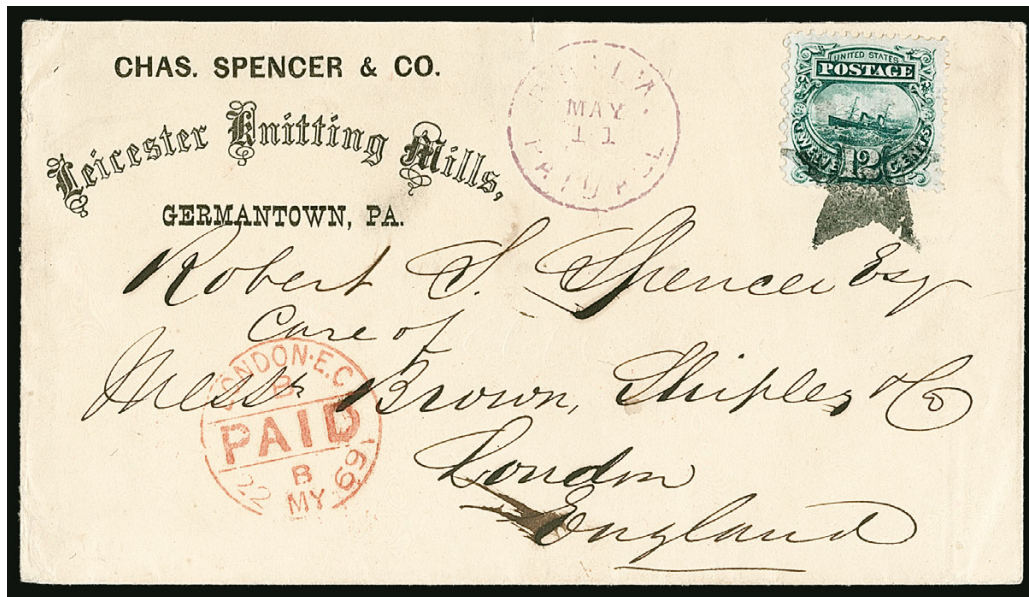 CHAS. SPENCER & CO.
Leicester Knitting Mills,
GERMANTOWN, PA.
MAY
11
PAID ALL
UNITED STATES
POSTAGE
TWELVE 12 CENTS
Robert S. Spencer Esq
Care of
Messrs Brown, Shipley & Co
London
England
LONDON·E.C
B
PAID
B
22 MY 69